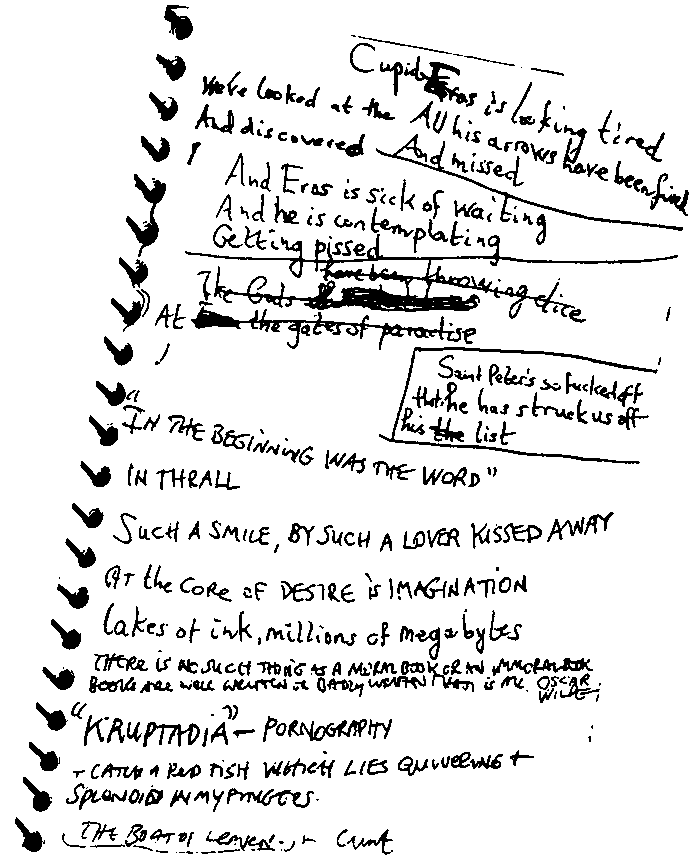 Cupid Eros is looking tired
We've looked at the All his arrows have been fired
And discovered And missed
And Eros is sick of waiting
And he is contemplating
Getting pissed
have been throwing dice
The Gods
At the gates of paradise
Saint Peter's so fucked off
that he has struck us off
his the list
"IN THE BEGINNING WAS THE WORD"
IN THRALL
SUCH A SMILE, BY SUCH A LOVER KISSED AWAY
AT the CORE OF DESIRE is IMAGINATION
lakes of ink, millions of megabytes
THERE IS NO SUCH THING AS A MORAL BOOK OR AN IMMORAL BOOK
BOOKS ARE WELL WRITTEN OR BADLY WRITTEN THAT IS ALL. OSCAR
WILDE;
"KRUPTADIA" - PORNOGRAPHY
- CATCH A RED FISH WHICH LIES QUIVERING +
SPLENDID IN MY FINGERS.
THE BOAT OF - Cunt